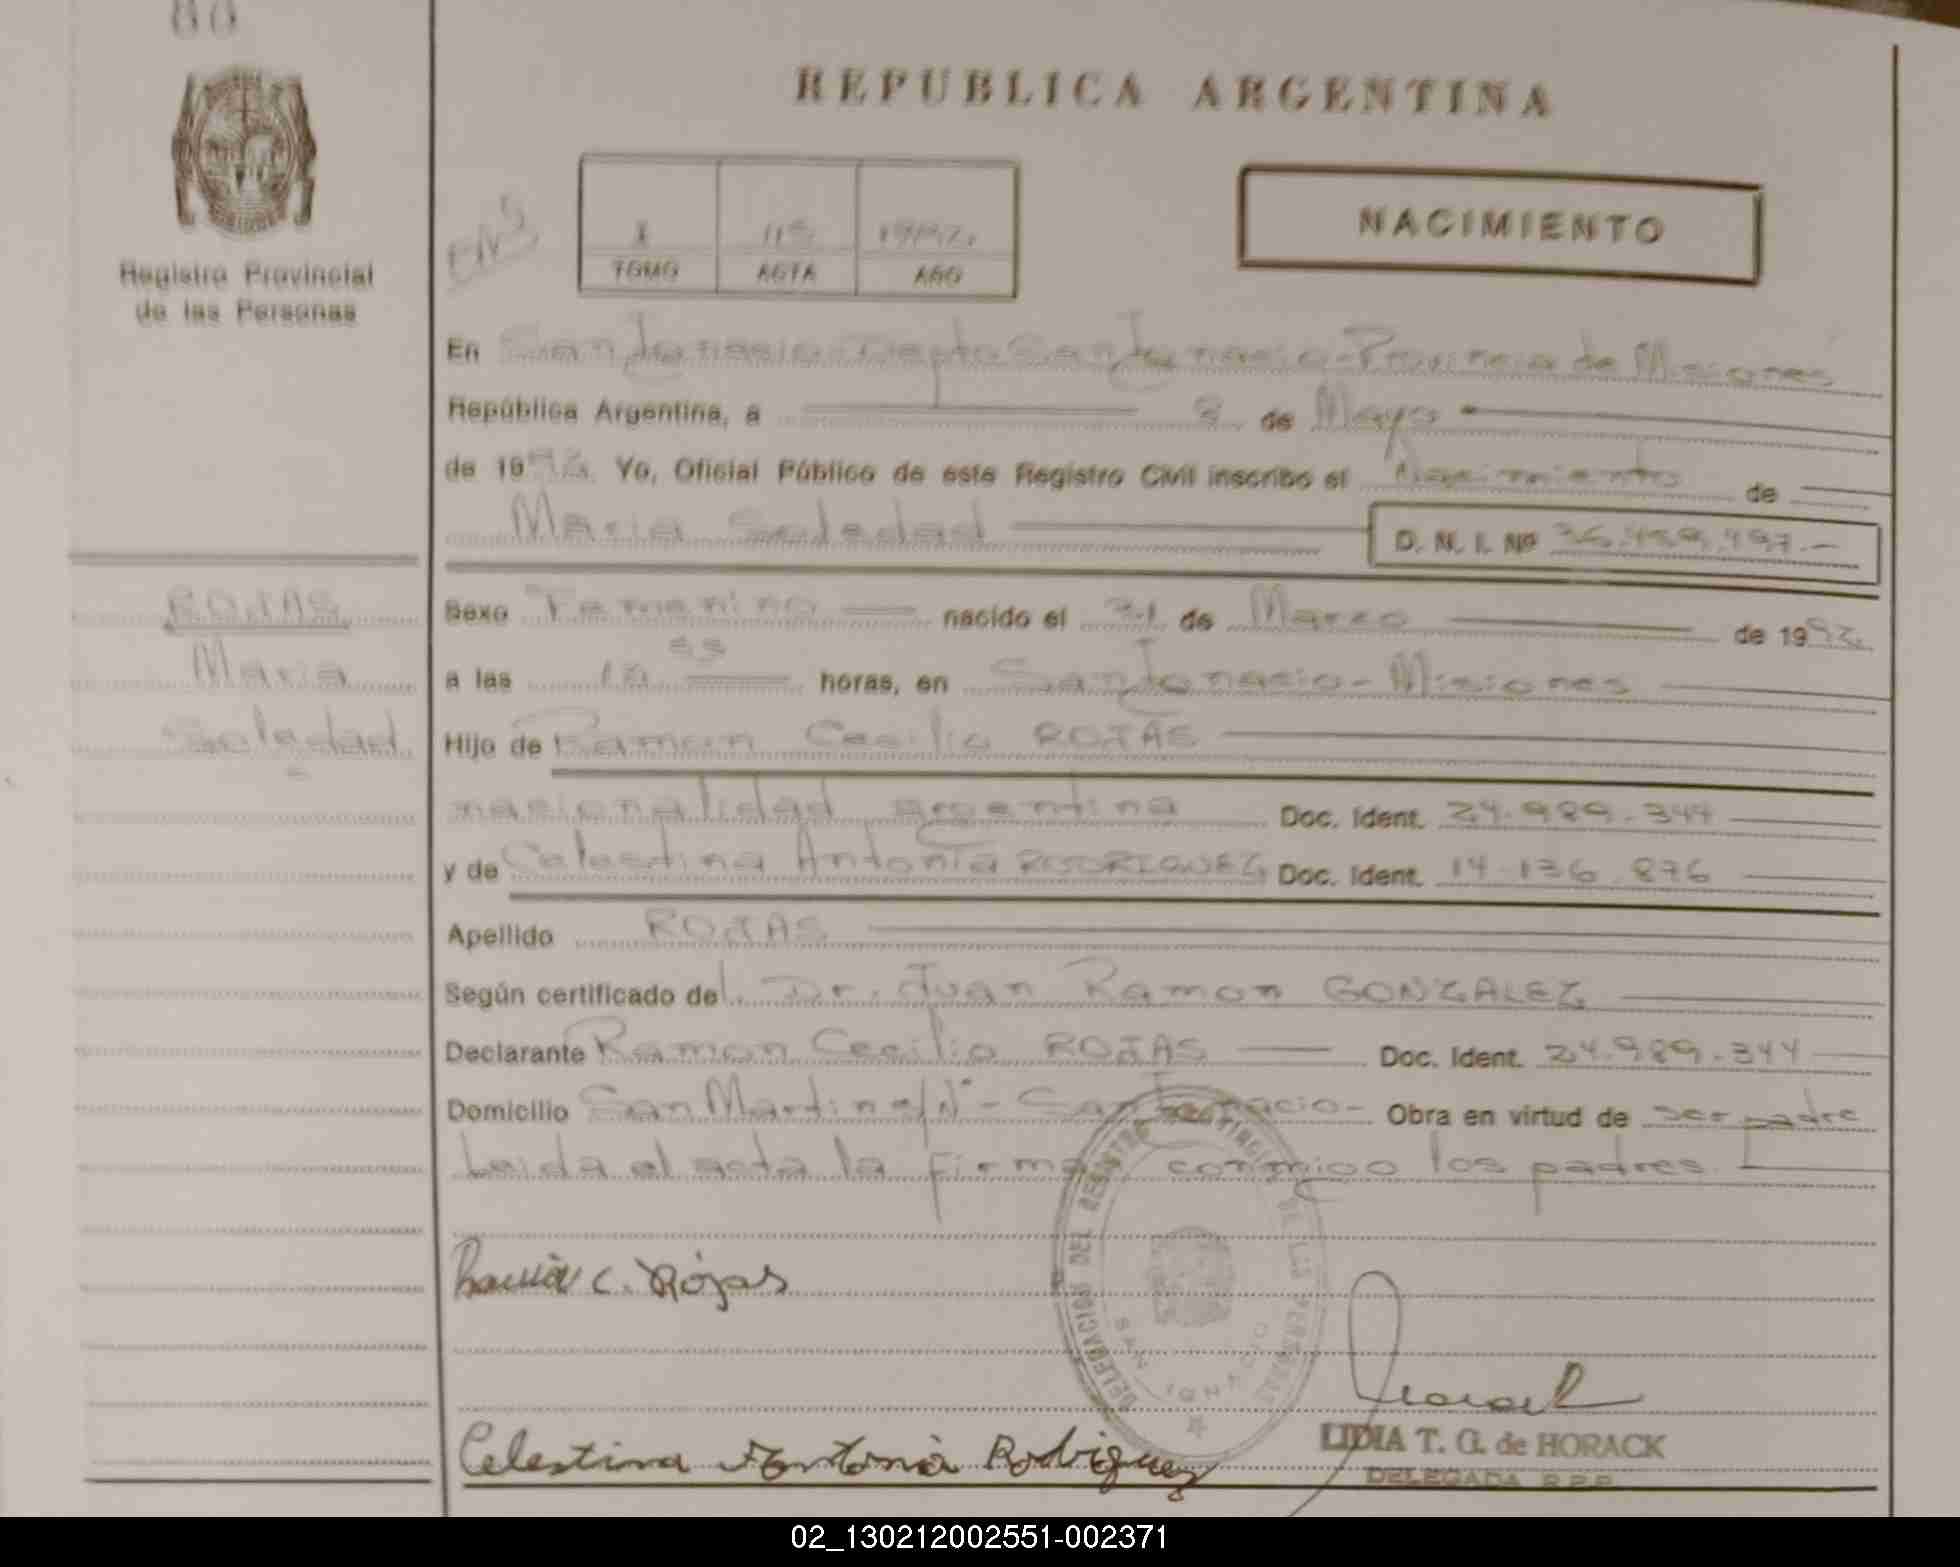 88
REPUBLICA ARGENTINA
Registro Provincial
de las Personas
I 115 1992.
TOMO ACTA AÑO
NACIMIENTO
En San Ignacio - Depto San Ignacio - Provincia de Misiones
República Argentina, a 8 de Mayo
de 1992. Yo, Oficial Público de este Registro Civil inscribo el Nacimiento de
Maria Soledad D. N. I. Nº 36.459.497.-
ROJAS
Maria
Soledad
Sexo Femenino nacido el 31 de Marzo de 1992.
a las horas, en San Ignacio - Misiones
Hijo de Ramon Cecilio ROJAS
nacionalidad argentina Doc. Ident. 24.989.344
y de Celestina Antonia RODRIGUEZ Doc. Ident. 14.136.876
Apellido ROJAS
Según certificado del Dr. Juan Ramon GONZALEZ
Declarante Ramon Cecilio ROJAS Doc. Ident. 24.989.344
Domicilio San Martin s/Nº - San Ignacio - Obra en virtud de ser padre
Leida el acta la firman conmigo los padres.
DELEGACION DEL REGISTRO PROVINCIAL DE LAS PERSONAS
SAN IGNACIO
Ramón C. Rojas
Horack
LIDIA T. G. de HORACK
DELEGADA R.P.P.
Celestina Antonia Rodriguez
02_130212002551-002371